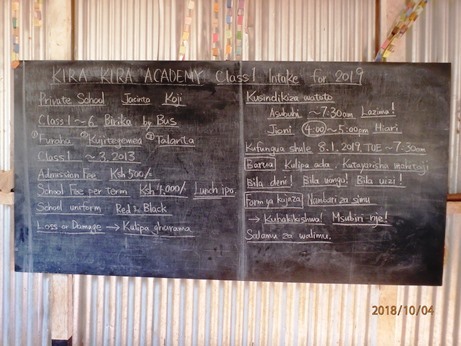 KIRA KIRA ACADEMY Class 1 Intake for 2019
Private School Jacinta Koji
Class 1 ~ 6 Birika by Bus
① Furaha ② Kujitegemea ③ Talanta
Class 1 ~ 3, 2013
Admission Fee Ksh 500/-
School Fee per Term Ksh 4,000/- Lunch ipo
School uniform Red & Black
Loss or Damage → Kulipa gharama
Kusindikiza watoto
Asubuhi ~ 7:30am Lazima!
Jioni 4:00 ~ 5:00pm Hiari
Kufungua shule 8.1.2019, TUE ~ 7:30am
Barua Kulipa ada Kutayarisha mahitaji
Bila deni! Bila vunga! Bila wizi!
Fom ya kujaza Nambari za simu
→ Kuhakikishwa! Msubiri nje!
Salamu za walimu.
2018/10/04